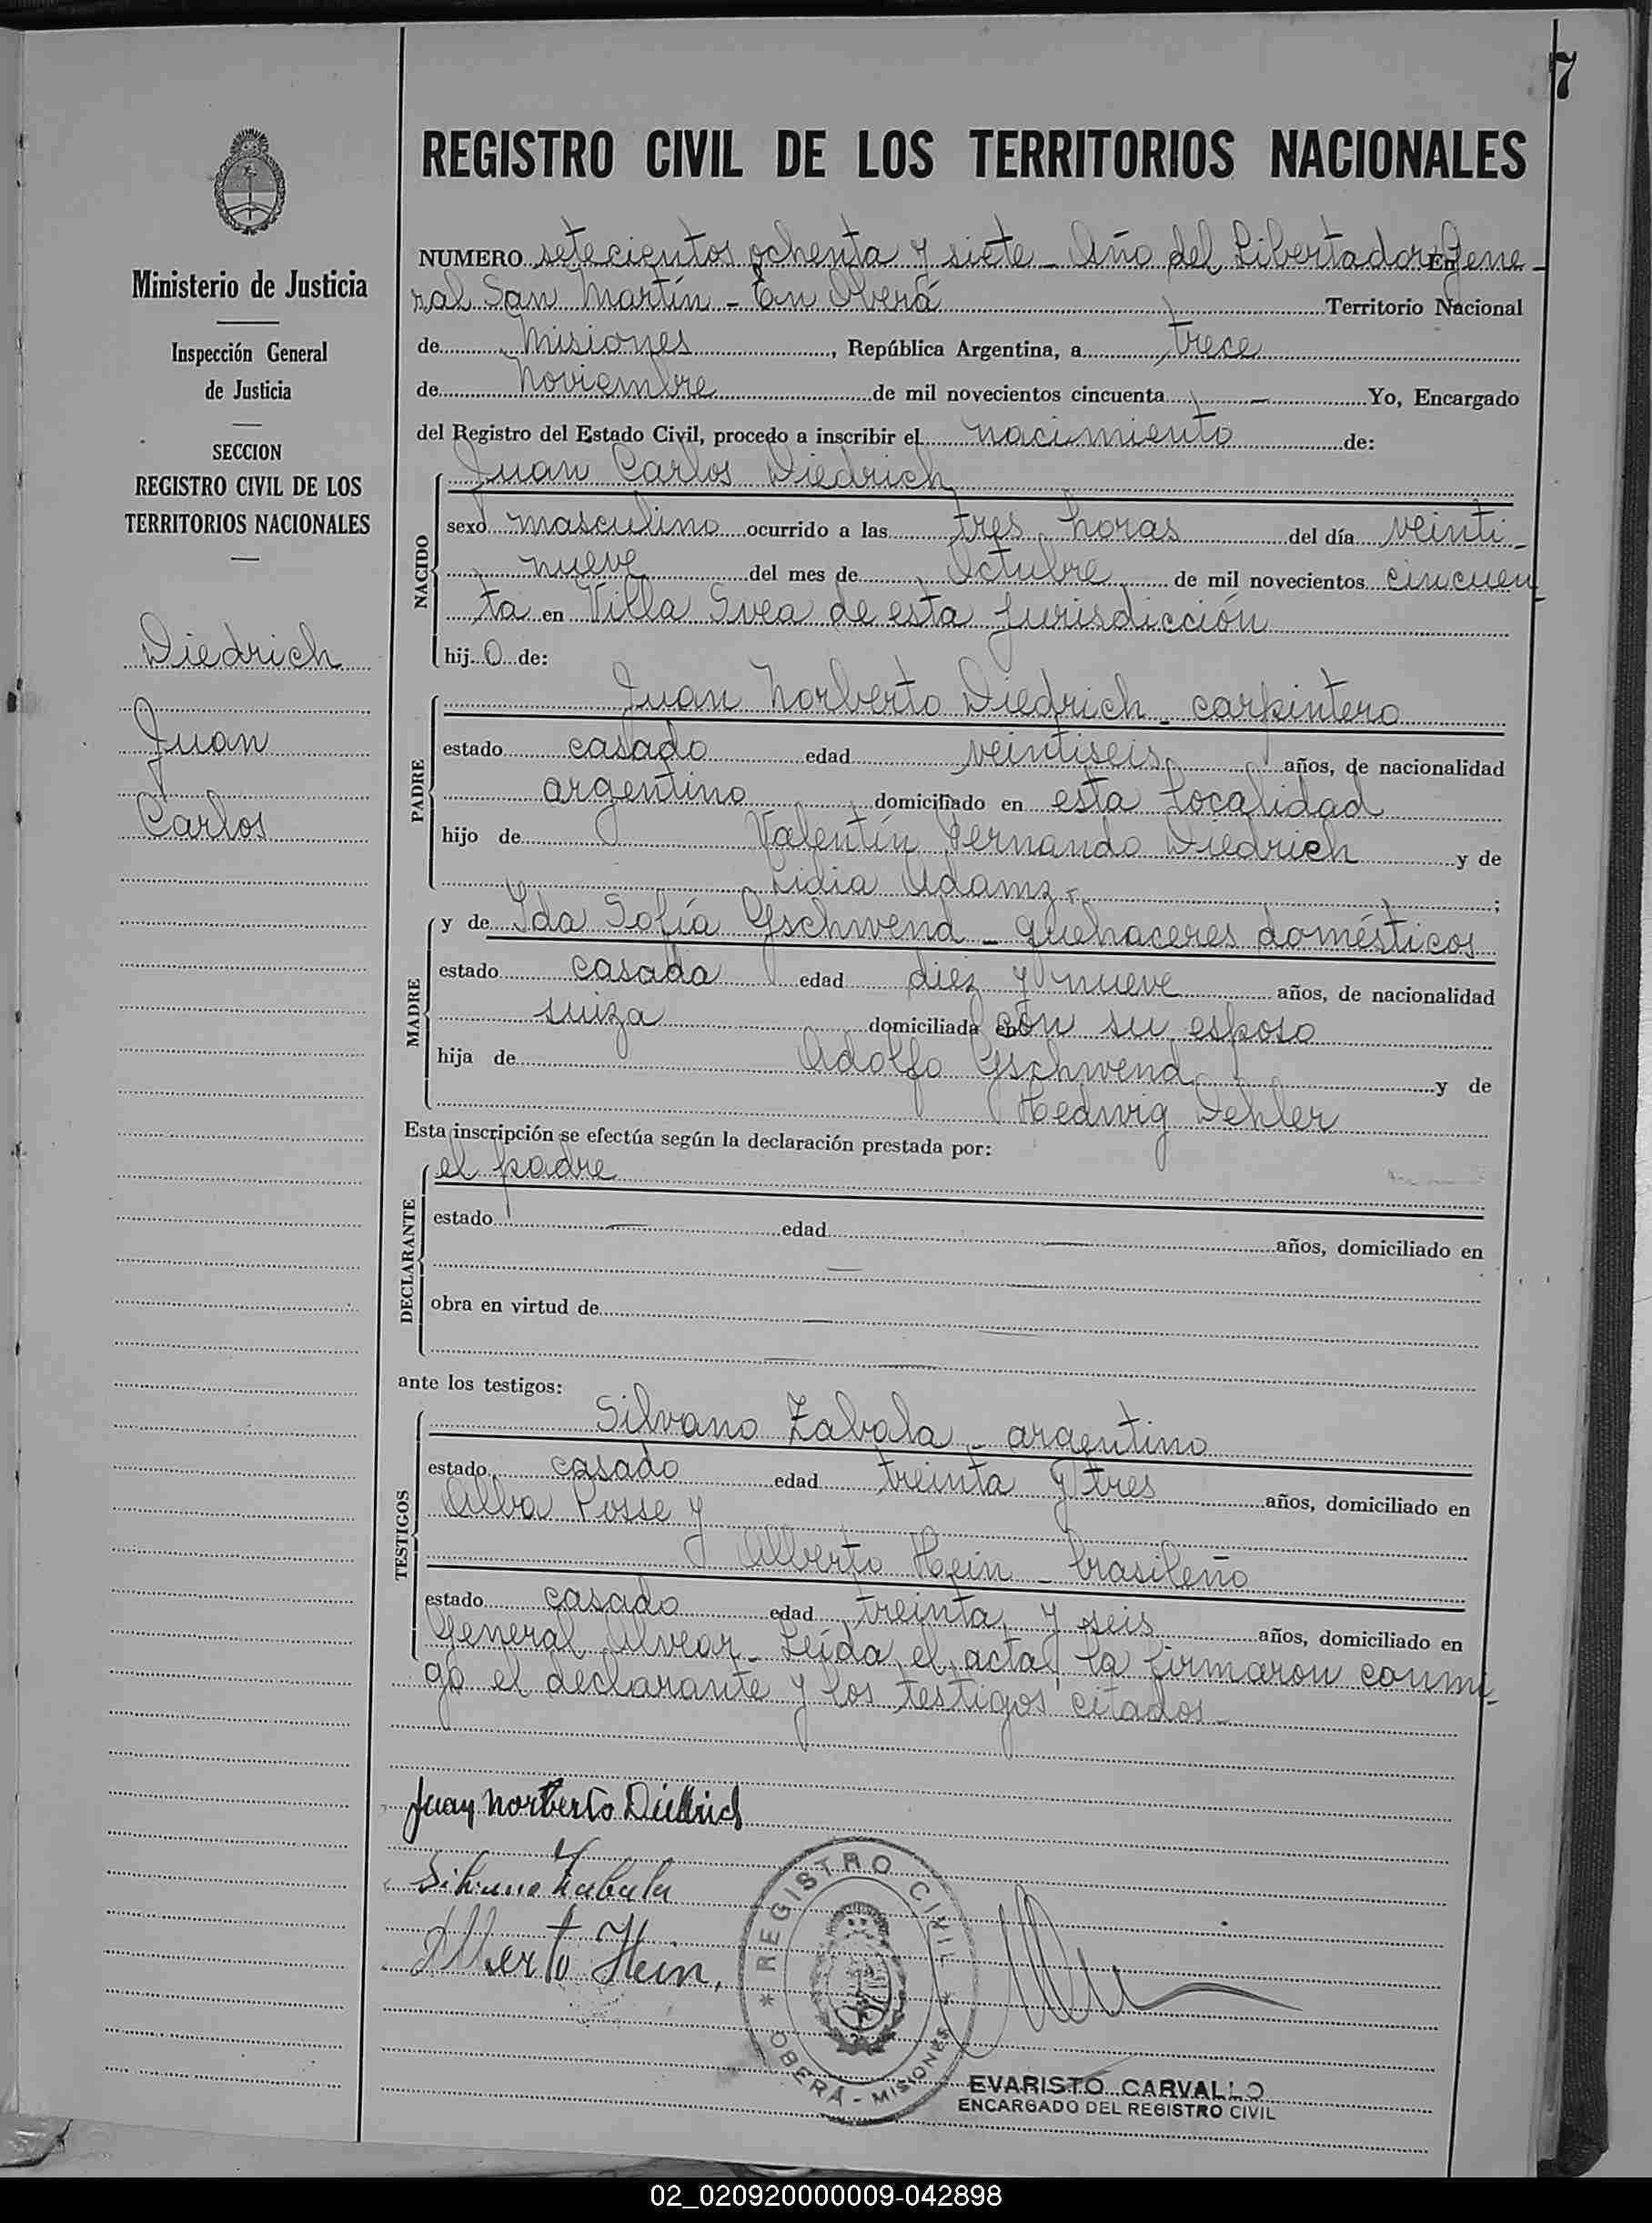 7
REGISTRO CIVIL DE LOS TERRITORIOS NACIONALES
Ministerio de Justicia
Inspección General
de Justicia
SECCION
REGISTRO CIVIL DE LOS
TERRITORIOS NACIONALES
Diedrich
Juan
Carlos
NUMERO setecientos ochenta y siete - Año del Libertador En Gene-
ral San Martín - En Oberá Territorio Nacional
de Misiones, República Argentina, a trece
de Noviembre de mil novecientos cincuenta - Yo, Encargado
del Registro del Estado Civil, procedo a inscribir el nacimiento de:
NACIDO
Juan Carlos Diedrich
sexo masculino ocurrido a las tres horas del día veinti-
nueve del mes de Octubre de mil novecientos cincuen-
ta en Villa Svea de esta jurisdicción
hijo de:
PADRE
Juan Norberto Diedrich - carpintero
estado casado edad veintiseis años, de nacionalidad
argentino domiciliado en esta localidad
hijo de Valentín Fernando Diedrich y de
Lidia Adamz -;
MADRE
y de Ida Sofía Gschwend - quehaceres domésticos
estado casada edad diez y nueve años, de nacionalidad
suiza domiciliada en con su esposo
hija de Adolfo Gschwend y de
Hedwig Oehler
Esta inscripción se efectúa según la declaración prestada por:
DECLARANTE
el padre
estado - edad - años, domiciliado en
obra en virtud de
ante los testigos:
TESTIGOS
Silvano Zabala - argentino
estado casado edad treinta y tres años, domiciliado en
Alba Posse y
Alberto Hein - brasileño
estado casado edad treinta y seis años, domiciliado en
General Alvear - Leída el acta, la firmaron conmi-
go el declarante y los testigos citados -
Juan Norberto Diedrich
Silvano Zabala
Alberto Hein.
REGISTRO CIVIL
* OBERÁ - MISIONES *
EVARISTO CARVALLO
ENCARGADO DEL REGISTRO CIVIL
02_020920000009-042898